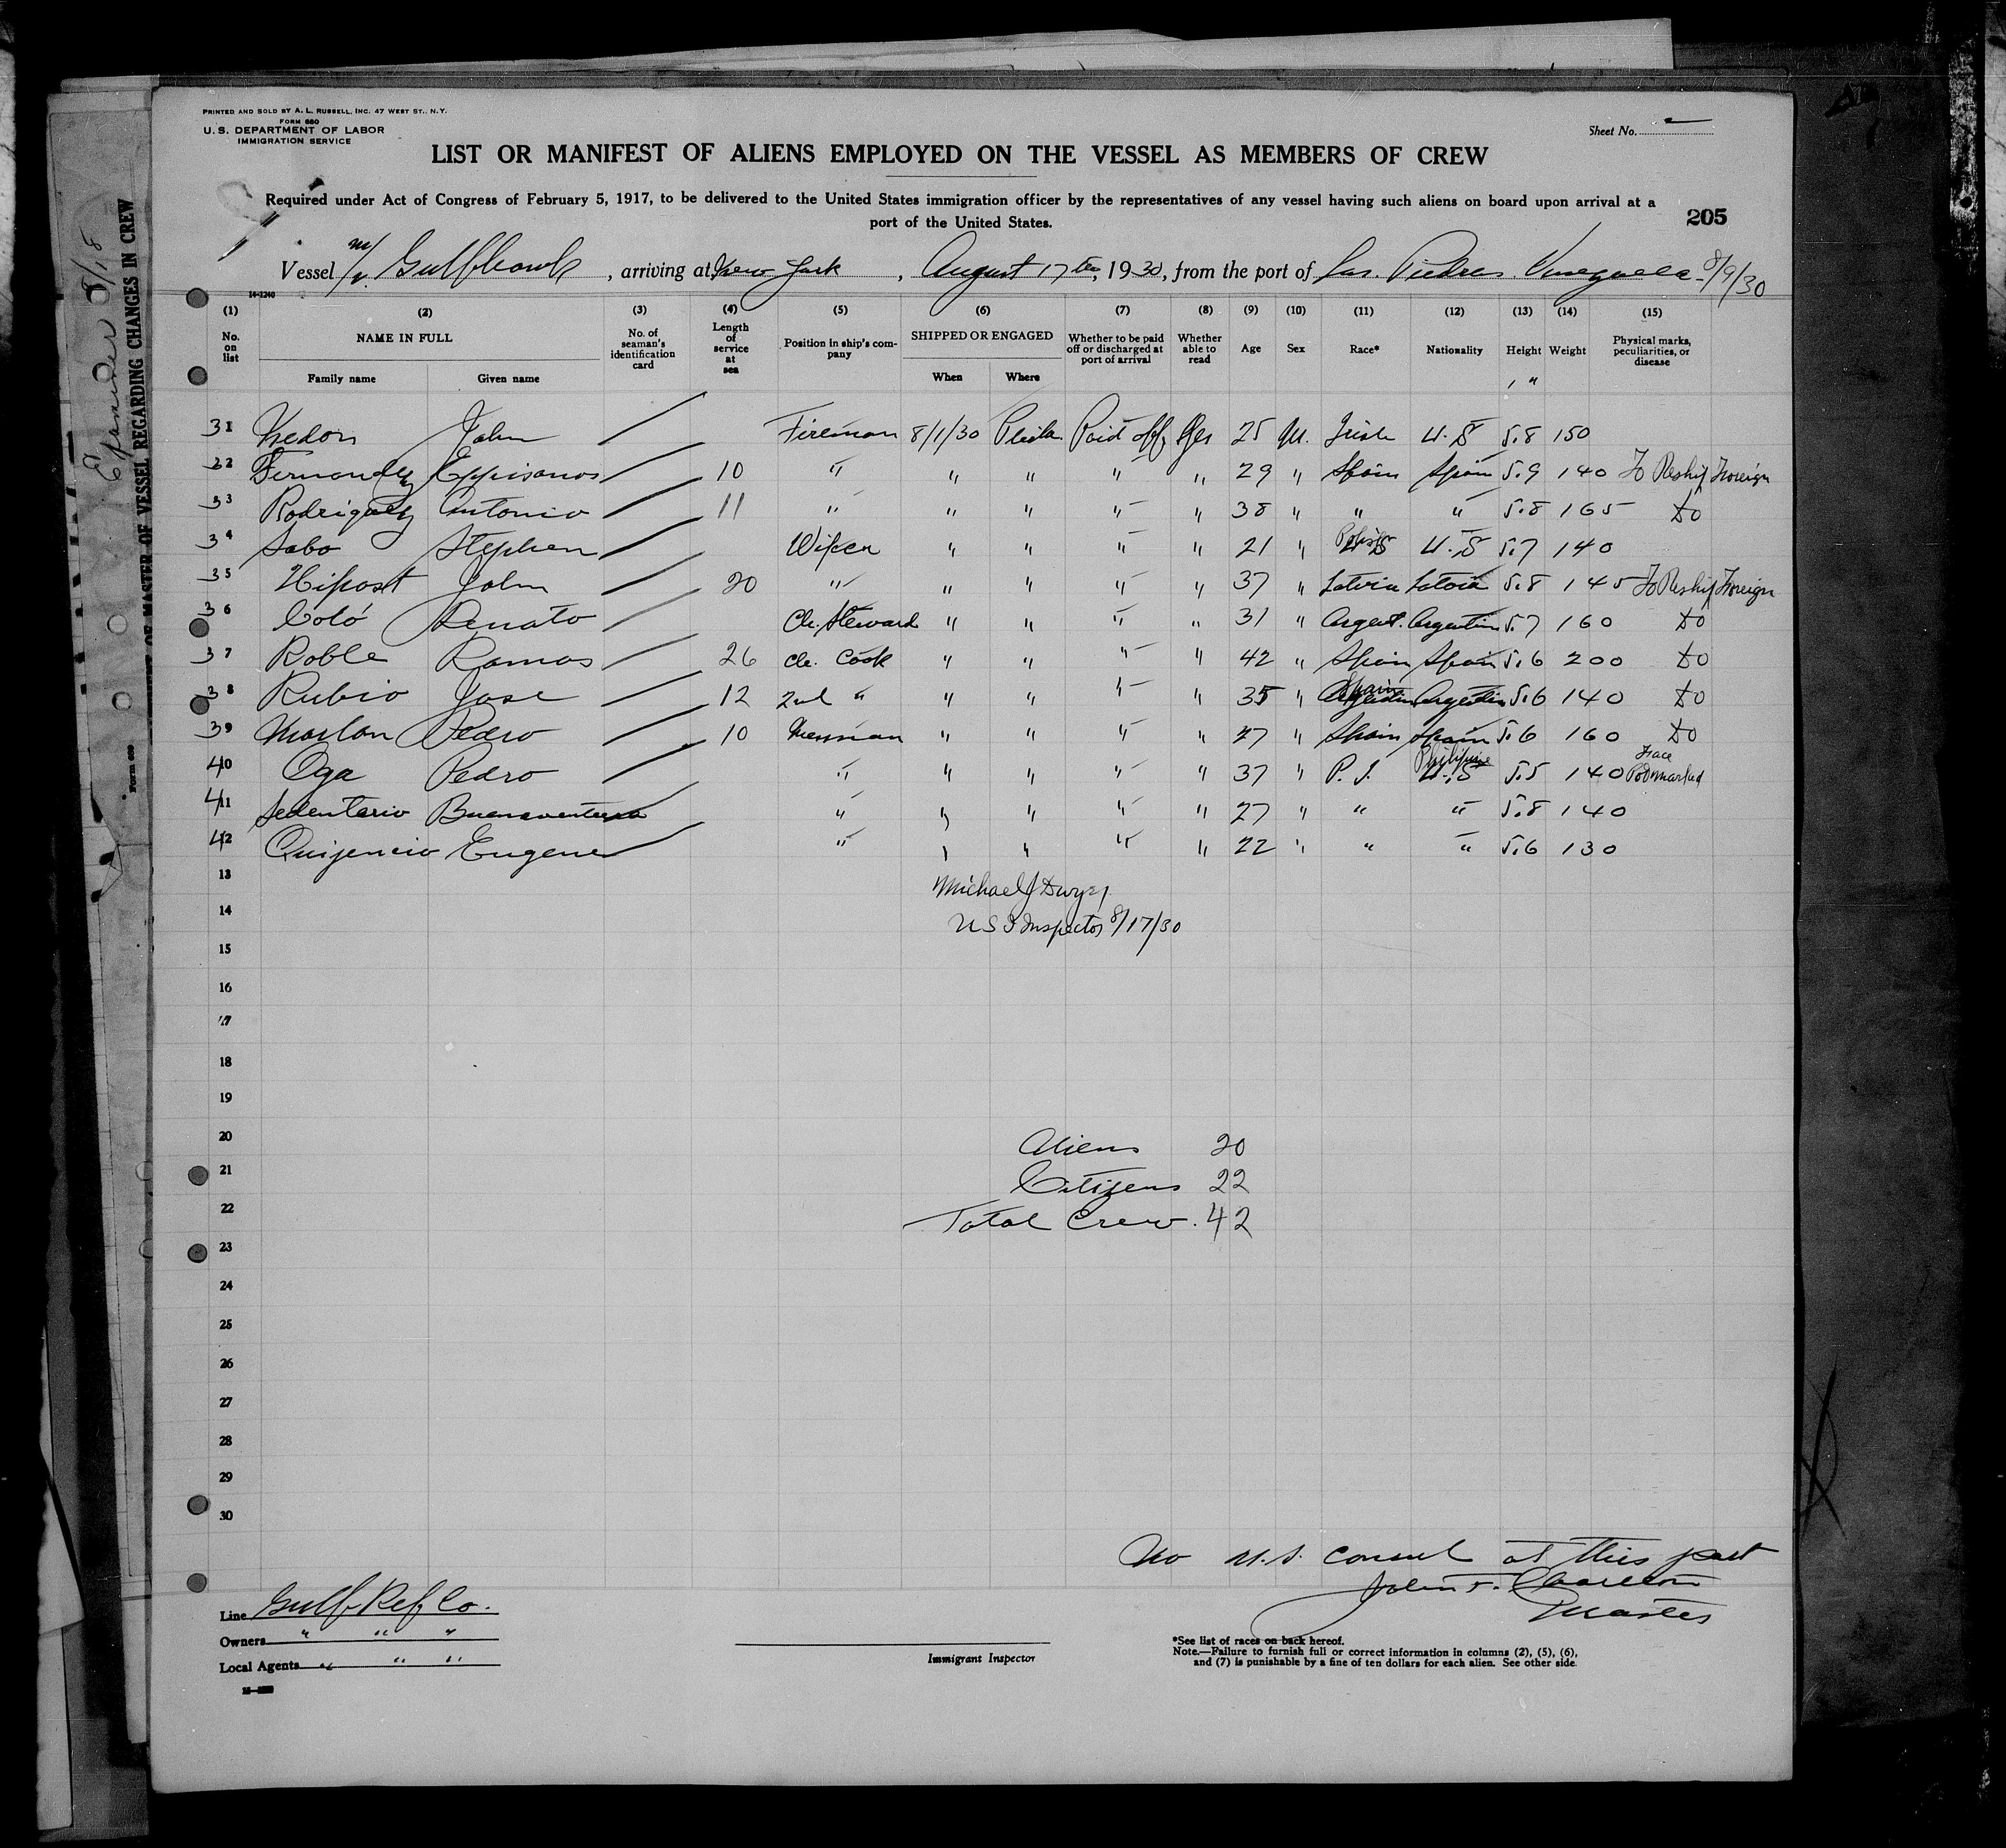 PRINTED AND SOLD BY A. L. RUSSELL, INC. 47 WEST ST., N.Y.
FORM 680
U. S. DEPARTMENT OF LABOR
IMMIGRATION SERVICE
Sheet No.
LIST OR MANIFEST OF ALIENS EMPLOYED ON THE VESSEL AS MEMBERS OF CREW
Required under Act of Congress of February 5, 1917, to be delivered to the United States immigration officer by the representatives of any vessel having such aliens on board upon arrival at a
port of the United States.
205
Vessel m/v Gulfhawk, arriving at New York, August 17th, 1930, from the port of Las Piedras Venezuela - 8/9/30
14-1240
(1) (2) (3) (4) (5) (6) (7) (8) (9) (10) (11) (12) (13) (14) (15)
No. on list NAME IN FULL No. of seaman's identification card Length of service at sea Position in ship's company SHIPPED OR ENGAGED Whether to be paid off or discharged at port of arrival Whether able to read Age Sex Race* Nationality Height Weight Physical marks, peculiarities, or disease
Family name Given name When Where ' "
31 John Fireman 8/1/30 Phila. Paid off Yes 25 M. Irish U.S 5.8 150
32 Fernandez 10 " " " " " 29 " Spain Spain 5.9 140 To Reship Foreign
33 Rodriguez Antonio 11 " " " " " 38 " " " 5.8 165 do
34 Sabo Stephen Wiper " " " " 21 " Polish U.S U.S 5.7 140
35 John 20 " " " " " 37 " Latvia Latvia 5.8 145 To Reship Foreign
36 Coló Renato Ch. Steward " " " " 31 " Argent. Argentin 5.7 160 do
37 Roble Ramos 26 Ch. Cook " " " " 42 " Spain Spain 5.6 200 do
38 Rubio Jose 12 2nd " " " " " 35 " Spain Argentin Argentin 5.6 140 do
39 Pedro 10 Messman " " " " 27 " Spain Spain 5.6 160 do
40 Oga Pedro " " " " " 37 " P. I. Philippine U.S 5.5 140 Face Pockmarked
41 Sedentario Buenaventura " " " " " 27 " " " 5.8 140
42 Quijencio Eugene " " " " " 22 " " " 5.6 130
13 Michael J Dwyer
14 U S I Inspector 8/17/30
15
16
17
18
19
20 Aliens 20
21 Citizens 22
22 Total Crew. 42
23
24
25
26
27
28
29
30
No U.S. Consul at this port
John F. Charlton
Master
Line Gulf Ref Co.
Owners " " "
Local Agents " " "
Immigrant Inspector
*See list of races on back hereof.
Note.—Failure to furnish full or correct information in columns (2), (5), (6),
and (7) is punishable by a fine of ten dollars for each alien. See other side.
OF MASTER OF VESSEL REGARDING CHANGES IN CREW
8/18